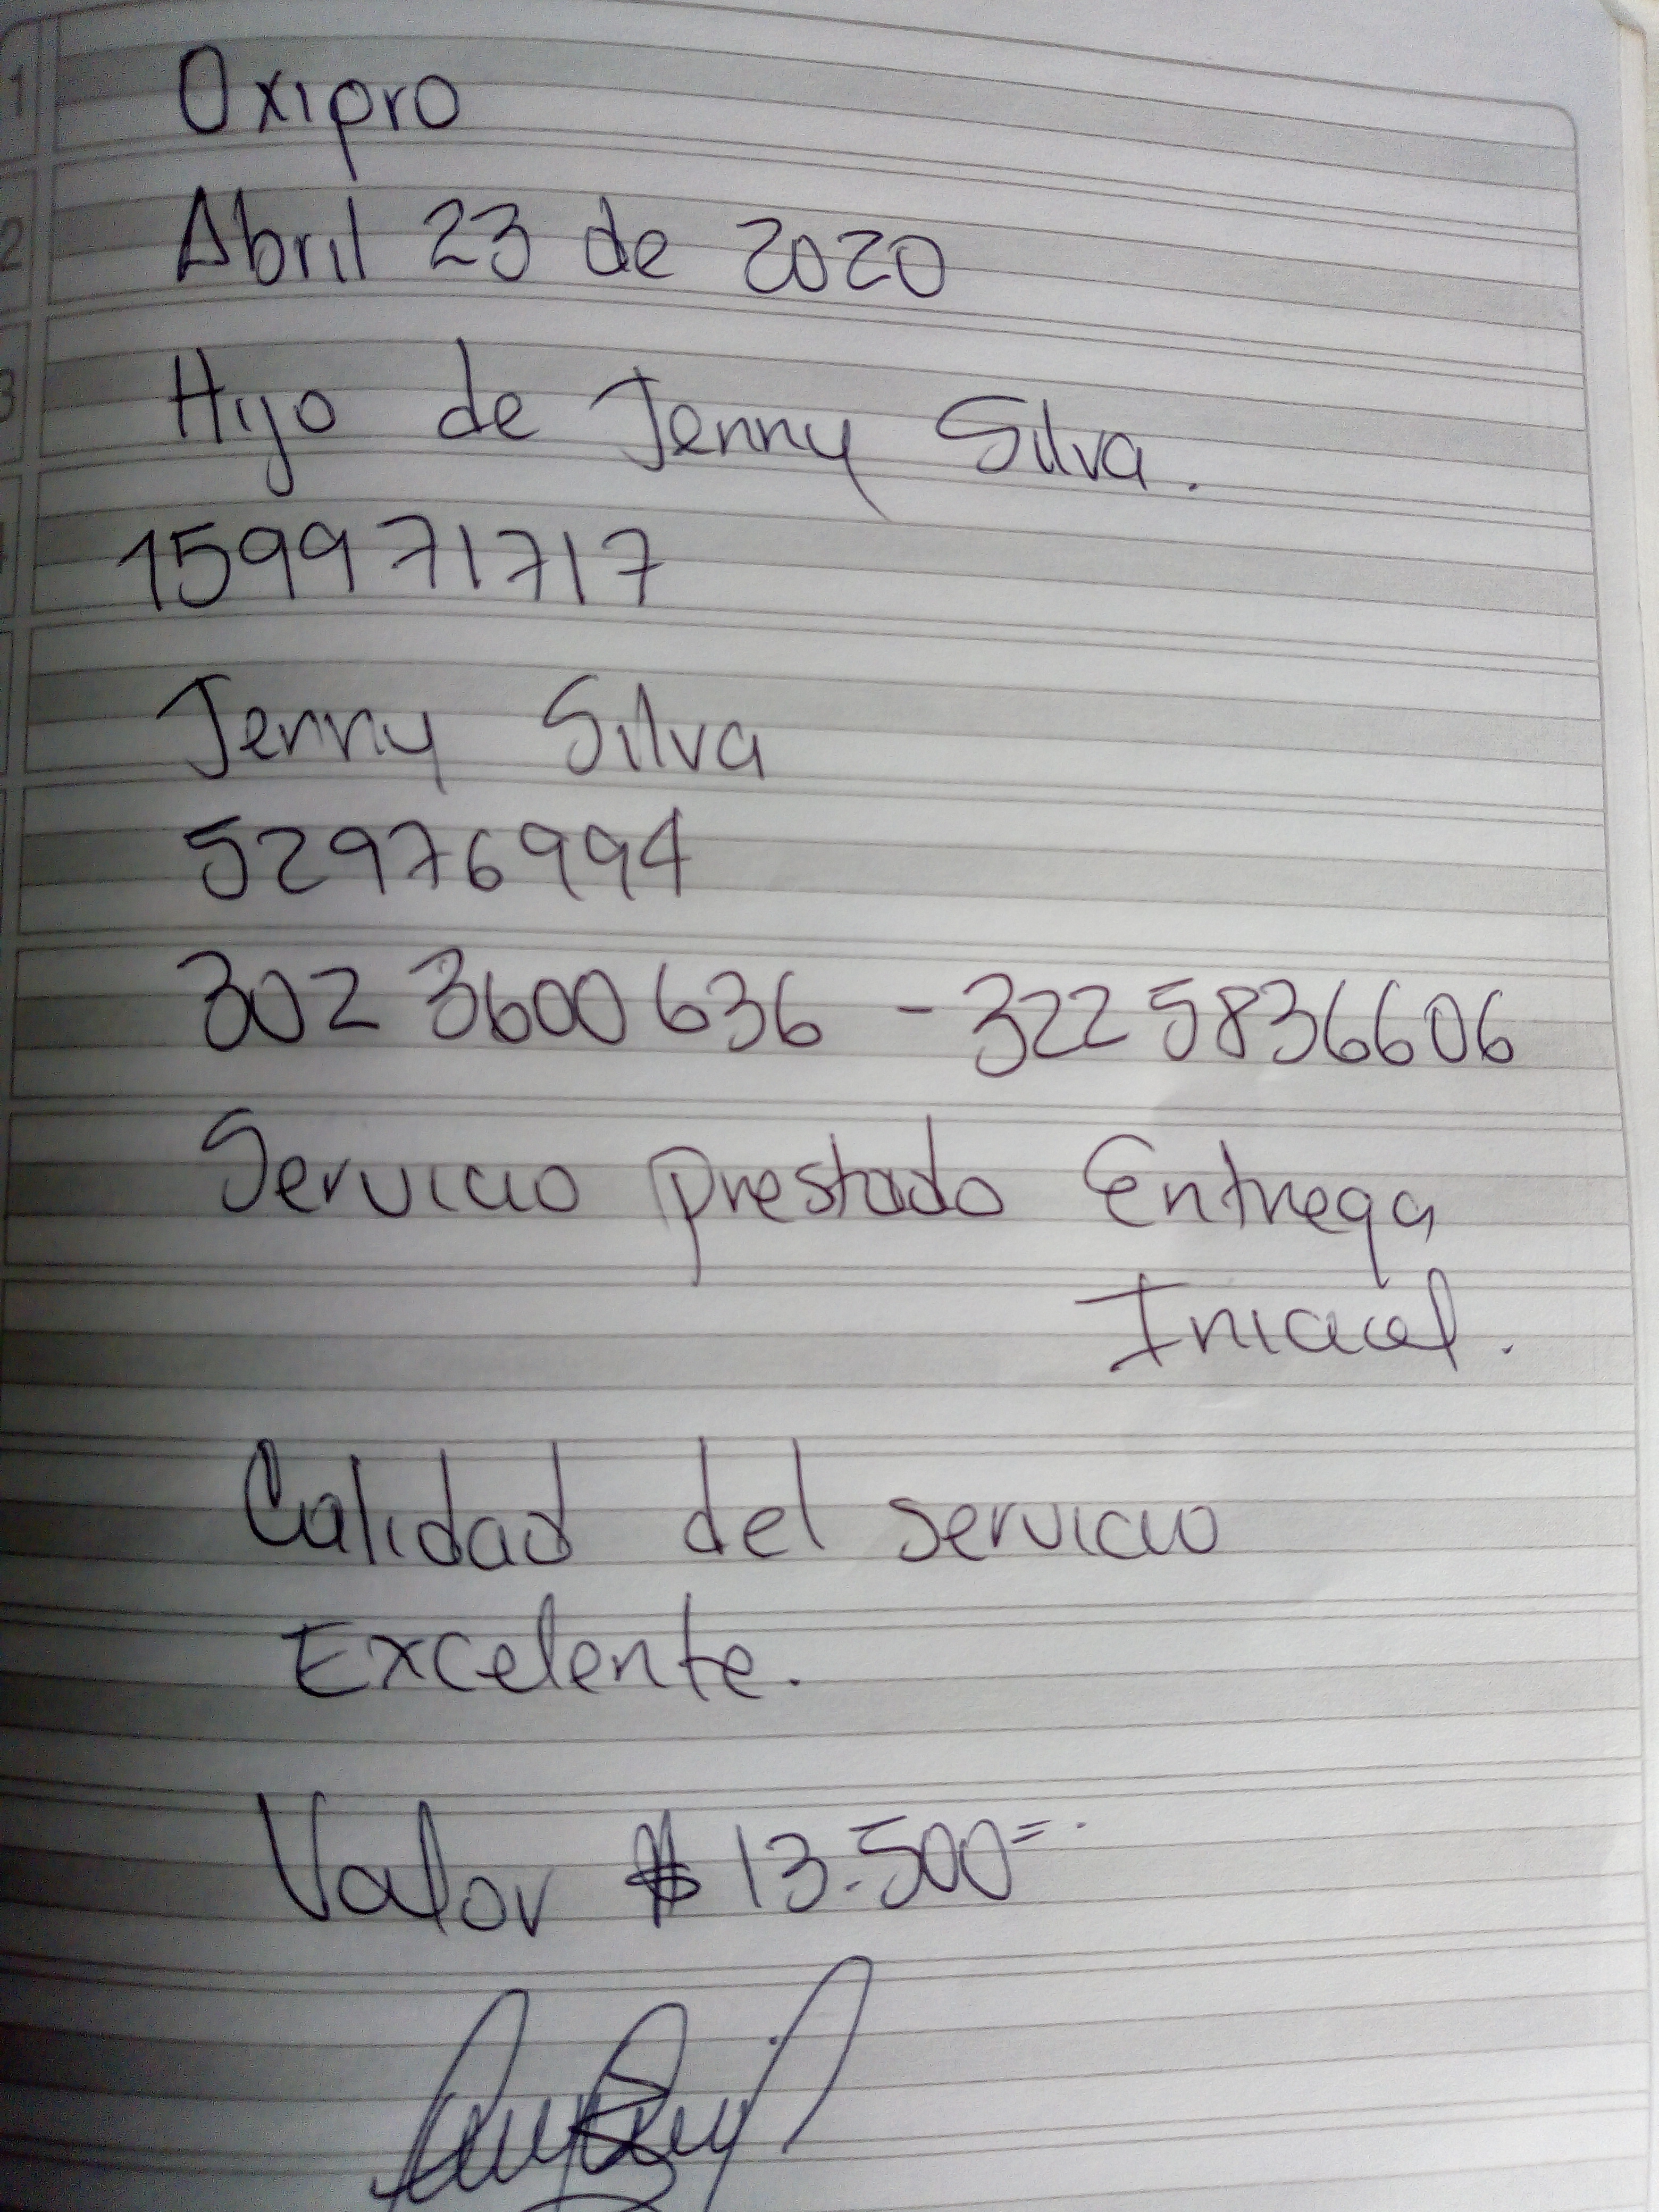 1
Oxipro
2
Abril 23 de 2020
3
Hijo de Jenny Silva.
159971717
Jenny Silva
52976994
302 3600636 - 322 5836606
Servicio prestado Entrega
Inicial.
Calidad del servicio
Excelente.
Valor $ 13.500=.